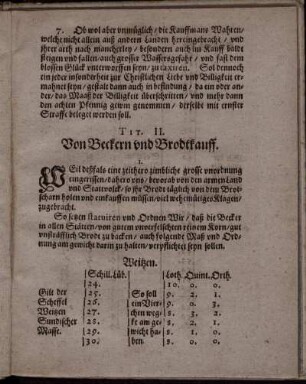 7. Ob wol aber vnmüglich / die Kauffmans Wahren /
welche nicht allein auß andern Landen hereingebracht / vnd
ihrer arth nach mancherley / besondern auch im Kauff balde
steigen vnd fallen / auch grosser Wassersgefahr / vnd fast dem
blossen Glück vnterworffen seyn / zu taxiren. Sol dennoch
ein jeder insonderheit zur Christlichen Liebe vnd Billigkeit er-
mahnet seyn / gestalt dann auch in befindung / da ein oder an-
der / das Maaß der Billigkeit überschritten / vnd mehr dann
den achten Pfennig gewin genommen / derselbe mit ernster
Straffe beleget werden soll.
TIT. II.
Von Beckern vnd Brodtkauff.
1.
WEil deßfals eine zeithero zimbliche grosse vnordnung
eingerissen / dahero vns / bevorab von den armen Land
vnd Statvolck / so ihr Brodt täglich von dem Brot-
scharn holen vnd einkauffen müssen / viel wehemütige Klagen /
zugebracht.
So setzen statuiren vnd Ordnen Wir / daß die Becker
in allen Städten / von gutem vnverfelschten reinem Korn / gut
vnsträfflich Brodt zu backen / auch folgende Maß vnd Ord-
nung am gewicht darin zu halten / verpflichtet seyn sollen.
Weitzen.
Schill. Lüb. Loth Quint. Orth.
24. 10. 0. 0.
Gilt der 25. So soll 9. 2. 1.
Scheffel 26. ein Vier- 9. 0. 3.
Weitzen 27. chen weg- 8. 3. 2.
Sundischer 28. ke am ge- 8. 2. 1.
Masst. 29. wicht ha- 8. 1. 0.
30. ben. 8. 0. 0.